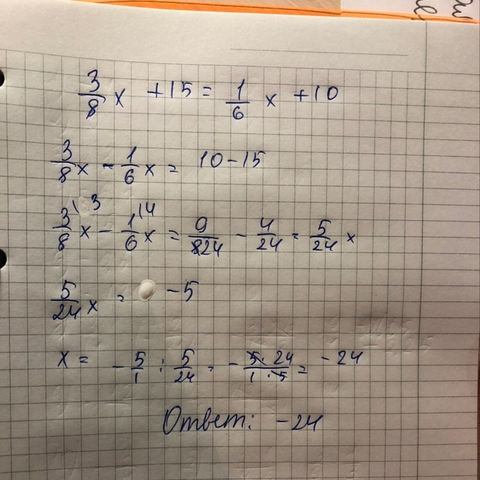 3/8 x + 15 = 1/6 x + 10
3/8 x - 1/6 x = 10 - 15
3\3/8 x - 1\4/6 x = 9/24 - 4/24 = 5/24 x
5/24 x = -5
x = -5/1 : 5/24 = -5·24/1·5 = -24
Ответ: -24